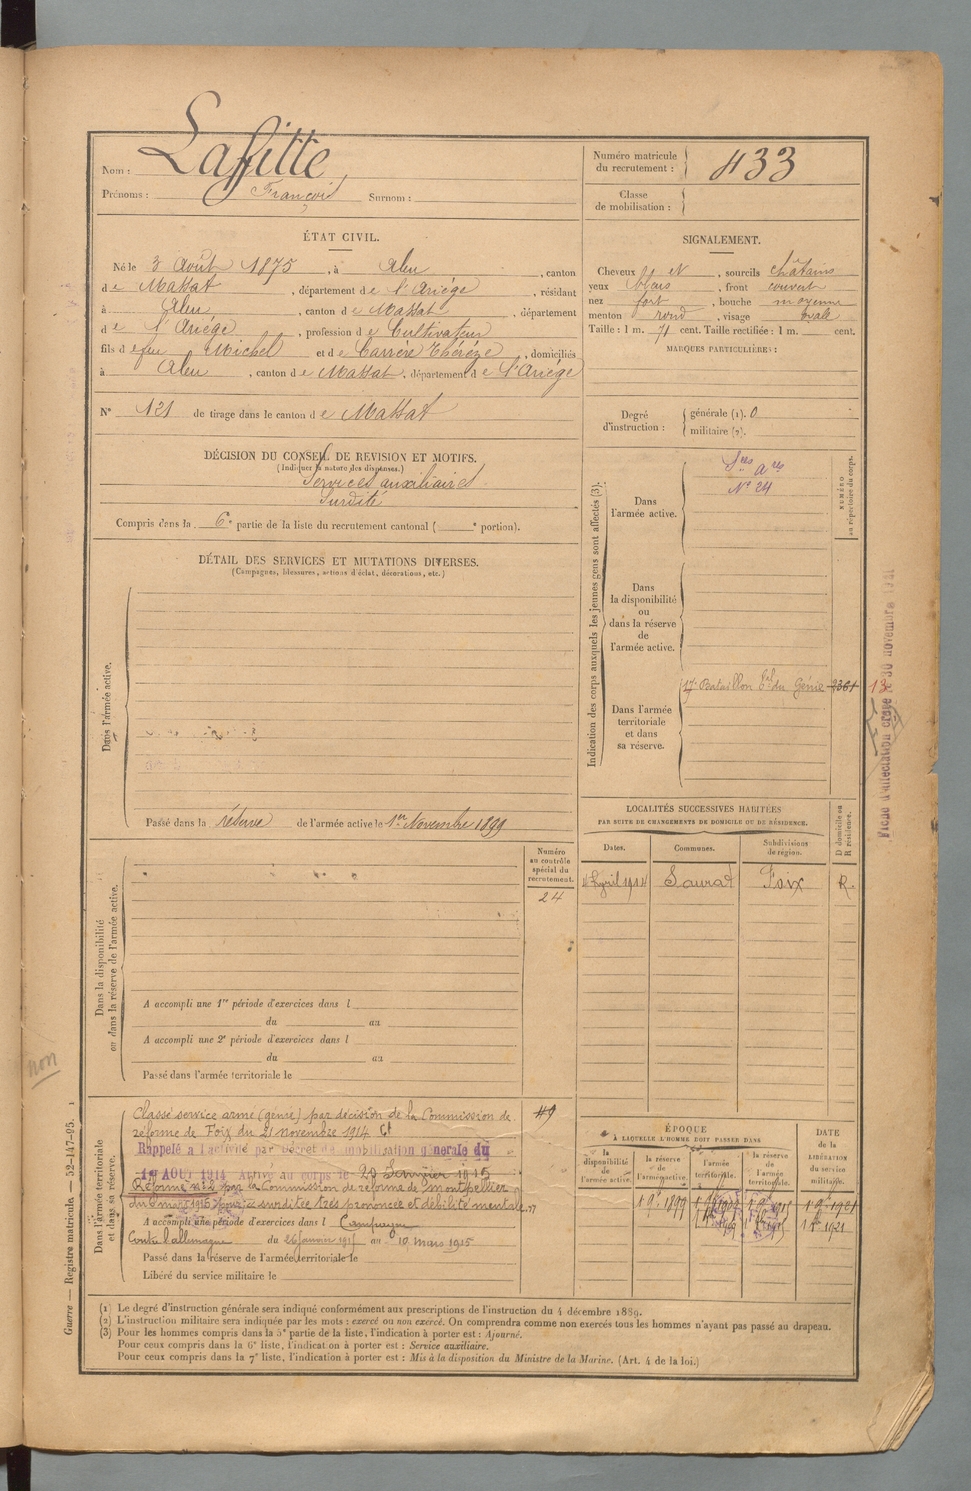 Nom : Laffitte
Prénoms : François Surnom :
Numéro matricule
du recrutement : 433
Classe
de mobilisation :
ÉTAT CIVIL.
Né le 3 Août 1875, à Aleu, canton
de Massat, département de l'Ariège, résidant
à Aleu, canton de Massat, département
de l'Ariége, profession de Cultivateur
fils de feu Michel et de Carrère Thérèze, domiciliés
à Aleu, canton de Massat, département de l'Ariège
N° 121 de tirage dans le canton de Massat
SIGNALEMENT.
Cheveux et , sourcils châtains
yeux bleus, front couvert
nez fort, bouche moyenne
menton rond, visage ovale
Taille : 1 m. 71 cent. Taille rectifiée : 1 m. cent.
MARQUES PARTICULIÈRES :
Degré
d'instruction :
générale (1). 0
militaire (2).
DÉCISION DU CONSEIL DE REVISION ET MOTIFS.
(Indiquer la nature des dispenses.)
Services auxiliaires
Surdité
Compris dans la 6e partie de la liste du recrutement cantonal ( e portion).
DÉTAIL DES SERVICES ET MUTATIONS DIVERSES.
(Campagnes, blessures, actions d'éclat, décorations, etc.)
Dans l'armée active.
Passé dans la réserve de l'armée active le 1er Novembre 1899
Indication des corps auxquels les jeunes gens sont affectés (3).
NUMÉRO
au répertoire du corps.
Dans
l'armée active.
Sces a res
N° 24
Dans
la disponibilité
ou
dans la réserve
de
l'armée active.
Dans l'armée
territoriale
et dans
sa réserve.
17e Bataillon du Génie 2361
13
Fiche d'affectation créée le 30 novembre
LOCALITÉS SUCCESSIVES HABITÉES
PAR SUITE DE CHANGEMENTS DE DOMICILE OU DE RÉSIDENCE.
Dates. Communes. Subdivisions
de région.
D domicile ou
R résidence.
Avril 1914 Saurat Foix R.
Dans la disponibilité
ou dans la réserve de l'armée active.
Numéro
au contrôle
spécial du
recrutement.
24
A accompli une 1re période d'exercices dans l
du au
A accompli une 2e période d'exercices dans l
du au
Passé dans l'armée territoriale le
non
Dans l'armée territoriale
et dans sa réserve.
Classé service armé (génie) par décision de la Commission de
réforme de Foix du 21 novembre 1914
Rappelé à l'activité par décret de mobilisation générale du
1er AOUT 1914 Arrivé au corps le 26 Janvier 1915
Réformé n° 2 par la Commission de réforme de Montpellier
du 8 mars 1915 pour " surditée très prononcée et débilité mentale "
A accompli une période d'exercices dans l Campagne
Contre l'allemagne du 26 janvier 1915 au 10 mars 1915
Passé dans la réserve de l'armée territoriale le
Libéré du service militaire le
49
ÉPOQUE
À LAQUELLE L'HOMME DOIT PASSER DANS
la
disponibilité
de
l'armée active.
la réserve
de
l'armée active.
l'armée
territoriale.
la réserve
de
l'armée
territoriale.
DATE
de la
LIBÉRATION
du service
militaire.
1 9bre 1899
1 9bre 1921
Guerre — Registre matricule. — 52-147-95. 1
(1) Le degré d'instruction générale sera indiqué conformément aux prescriptions de l'instruction du 4 décembre 1889.
(2) L'instruction militaire sera indiquée par les mots : exercé ou non exercé. On comprendra comme non exercés tous les hommes n'ayant pas passé au drapeau.
(3) Pour les hommes compris dans la 5e partie de la liste, l'indication à porter est : Ajourné.
Pour ceux compris dans la 6e liste, l'indication à porter est : Service auxiliaire.
Pour ceux compris dans la 7e liste, l'indication à porter est : Mis à la disposition du Ministre de la Marine. (Art. 4 de la loi.)